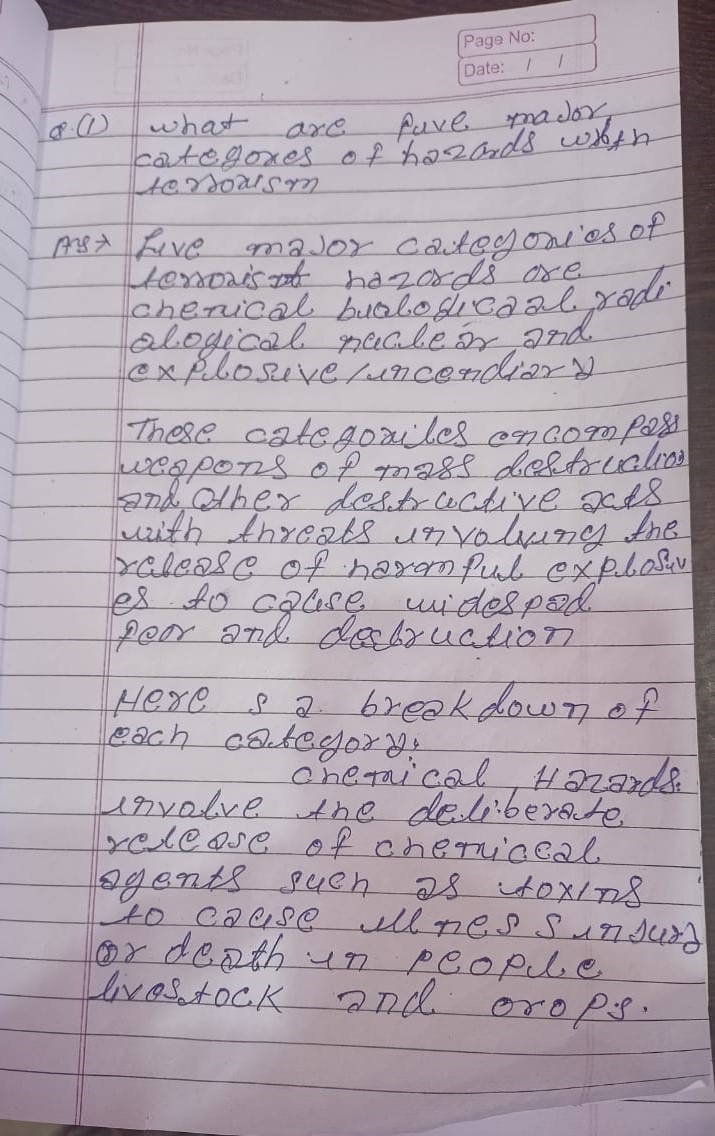 Page No:
Date: / /
Q.(1) what are fuve major
categoxes of hazards with
terroxism
Ans→ Five major categories of
terroxist hazords are
chemical buological radi
ological nuclear and
explosuve/uncendiary
These categories encompass
weapons of mass destruction
and other destructive acts
with threats unvolvung the
release of haramful explosuv
es to cause widespad
fear and destruction
Here s a breakdown of
each category.
chemical Hazards.
unvolve the deliberate
release of chemiceal
agents such as toxins
to cause illness unjury
or death un people
livestock and orops.